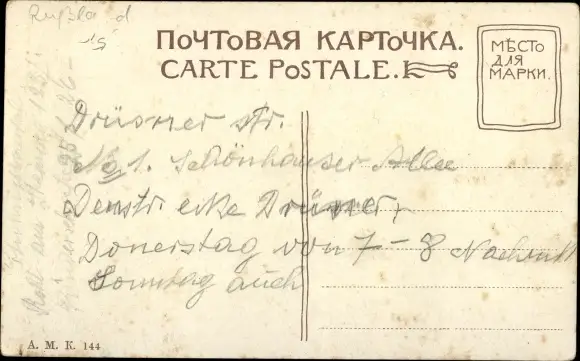 Rußland
15
ПОЧТОВАЯ КАРТОЧКА.
CARTE POSTALE.
МѢСТО
ДЛЯ
МАРКИ.
Drüsner str.
No 1. Schönhauser Allee
Demstr. ecke Drüsner,
Donerstag von 7-8 Nachmitt
Sonntag auch
A. M. K. 144